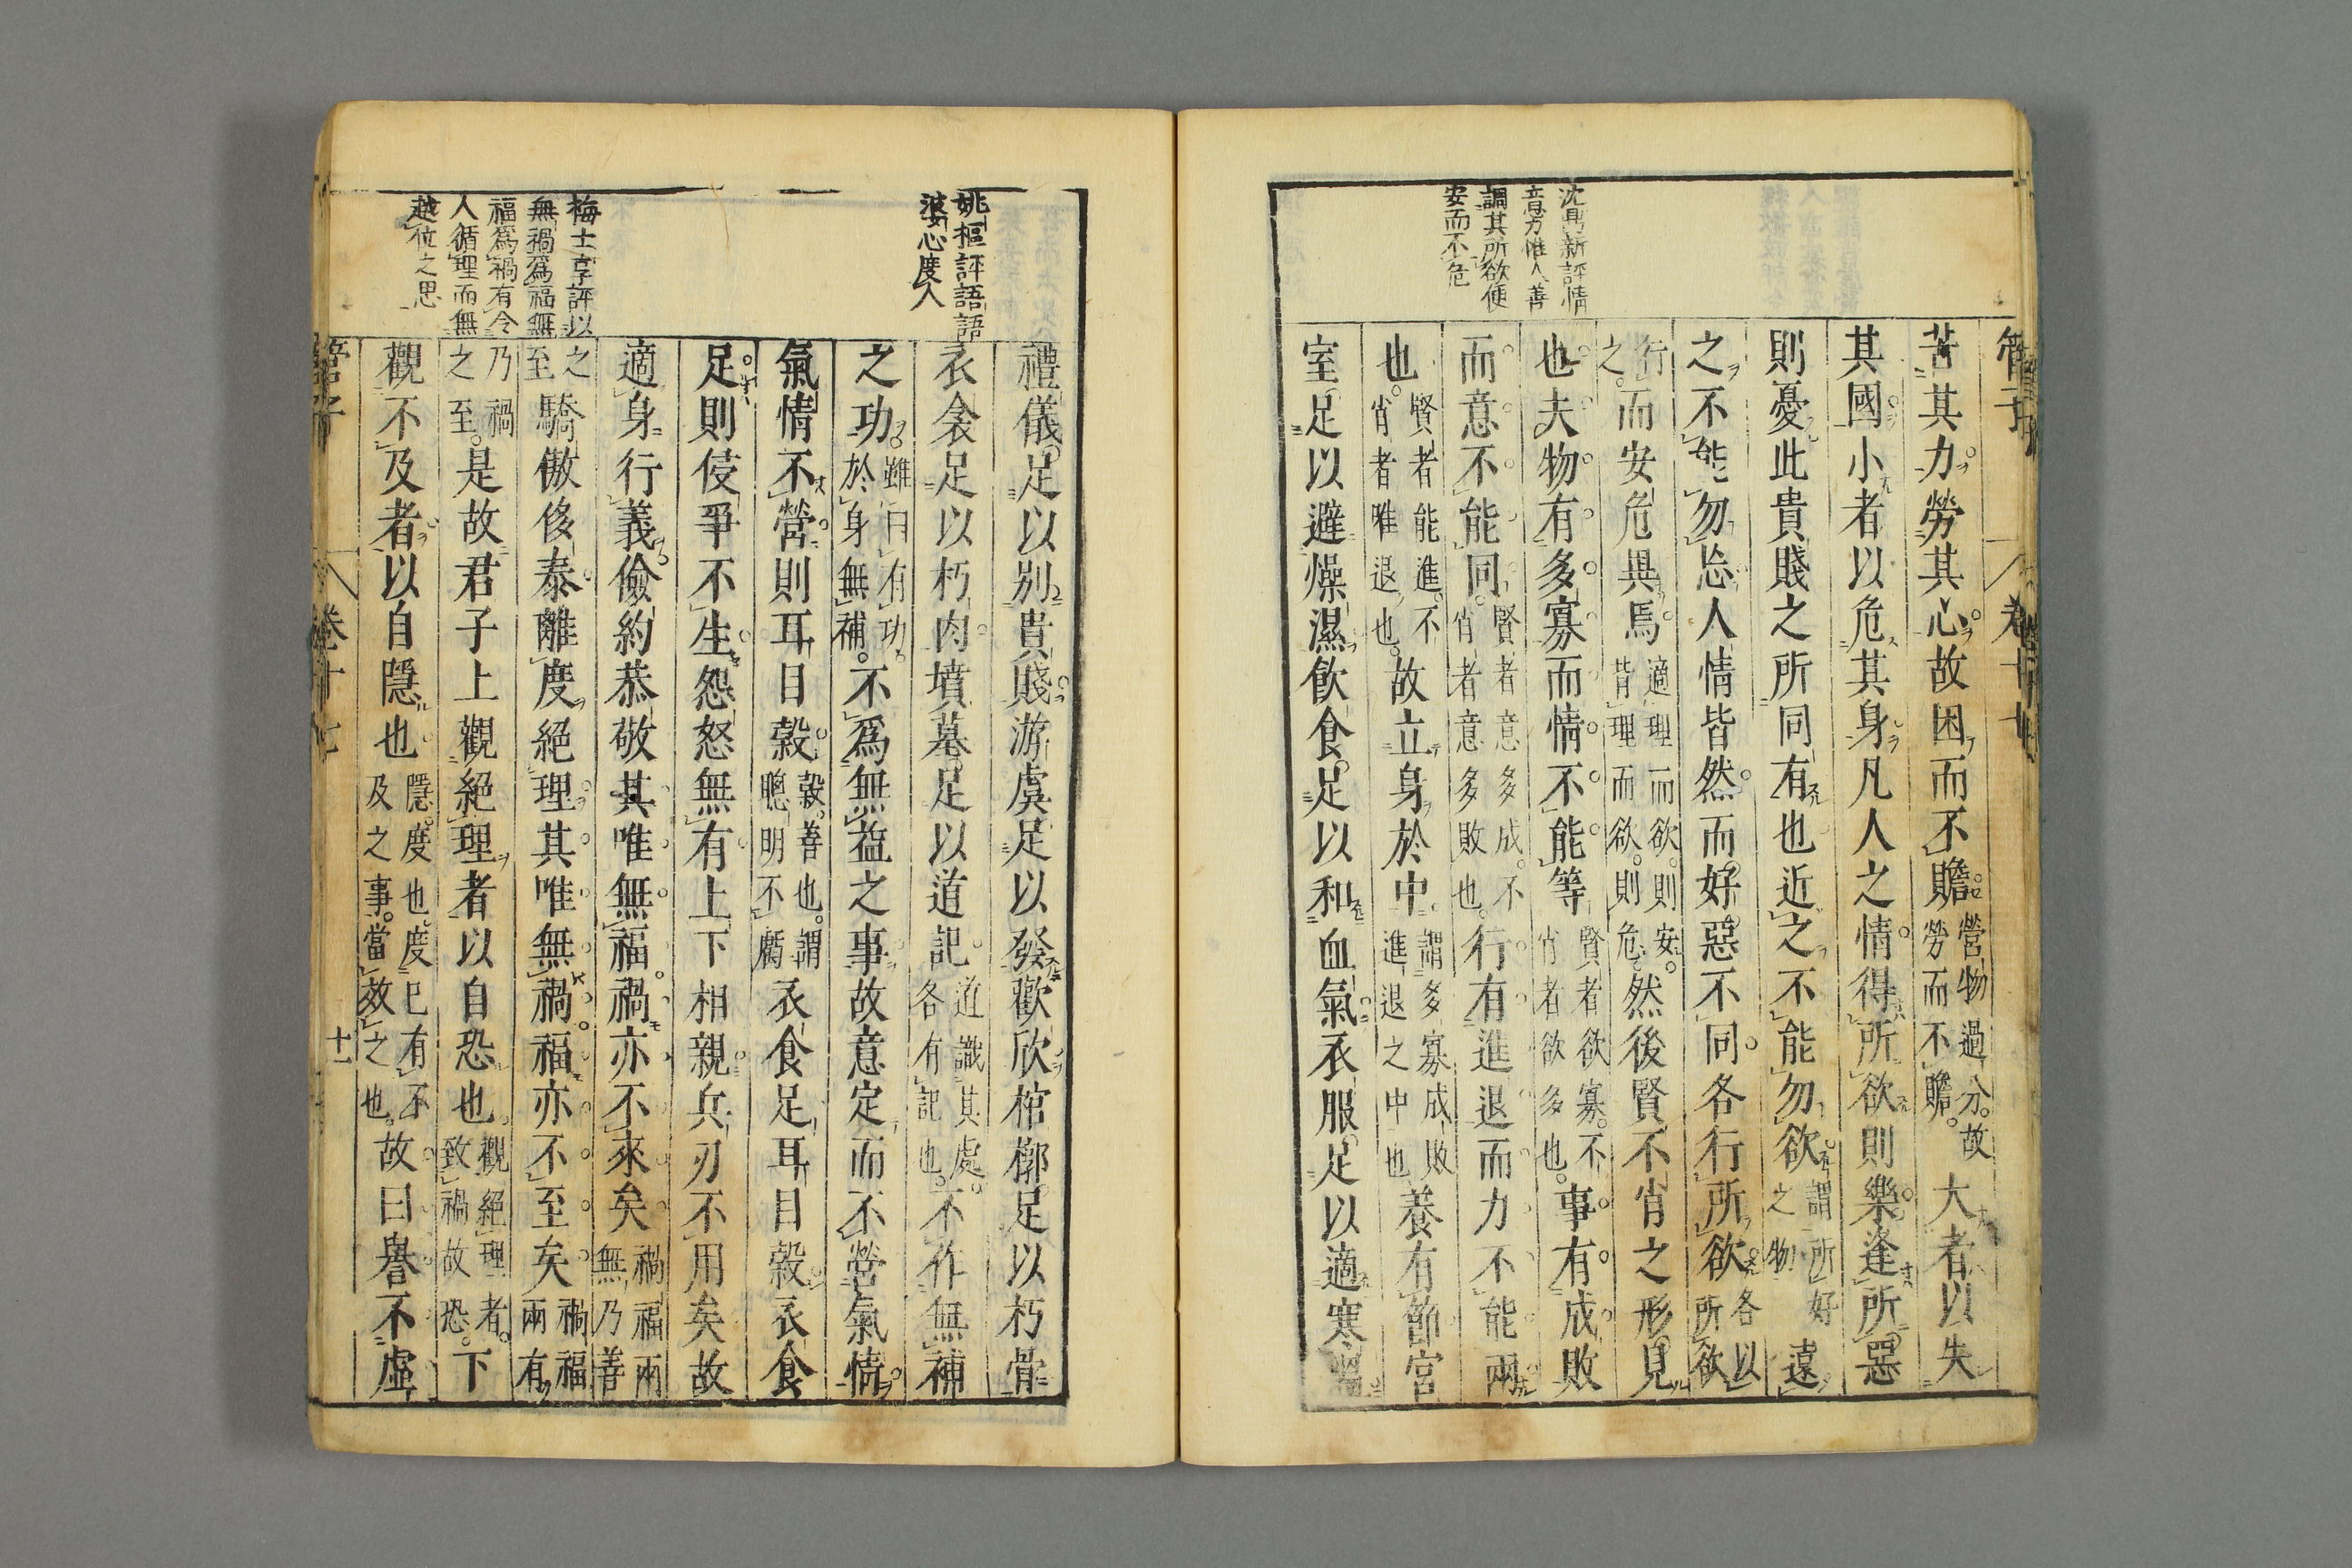 管子
卷十七
沈鼎新評情
意力惟人善
調其所欲便
安而不危
苦其力勞其心故困而不贍營物過分故勞而不贍大者以失
其國小者以危其身凡人之情得所欲則樂逢所惡
則憂此貴賤之所同有也近之不能勿欲謂所好之物遠
之不能勿忘人情皆然而好惡不同各行所欲各以所欲
行之而安危異焉適理而欲則安背理而欲則危然後賢不肖之形見
也夫物有多寡而情不能等賢者欲寡不肖者欲多也事有成敗
而意不能同賢者意多成不肖者意多敗也行有進退而力不能兩
也賢者能進不肖者唯退也故立身於中謂多寡成敗進退之中也養有節宮
室足以避燥濕飲食足以和血氣衣服足以適寒溫
姚樞評語語
婆心度人
梅士享評以
無禍爲福無
福爲禍有令
人循理而無
越位之思
禮儀足以別貴賤游虞足以發歡欣棺槨足以朽骨
衣衾足以朽肉墳墓足以道記道識其處各有記也不作無補
之功雖曰有功於身無補不爲無益之事故意定而不營氣情
氣情不營則耳目穀穀善也謂聰明不虧衣食足耳目穀衣食
足則侵爭不生怨怒無有上下相親兵刃不用矣故
適身行義儉約恭敬其唯無福禍亦不來矣禍福兩無乃善
之至驕傲侈泰離度絕理其唯無禍福亦不至矣禍福兩有
乃禍之至是故君子上觀絕理者以自恐也觀絕理者致禍故恐下
觀不及者以自隱也隱度也度已有不及之事當效之也故曰譽不虛
管子
卷十七
十一